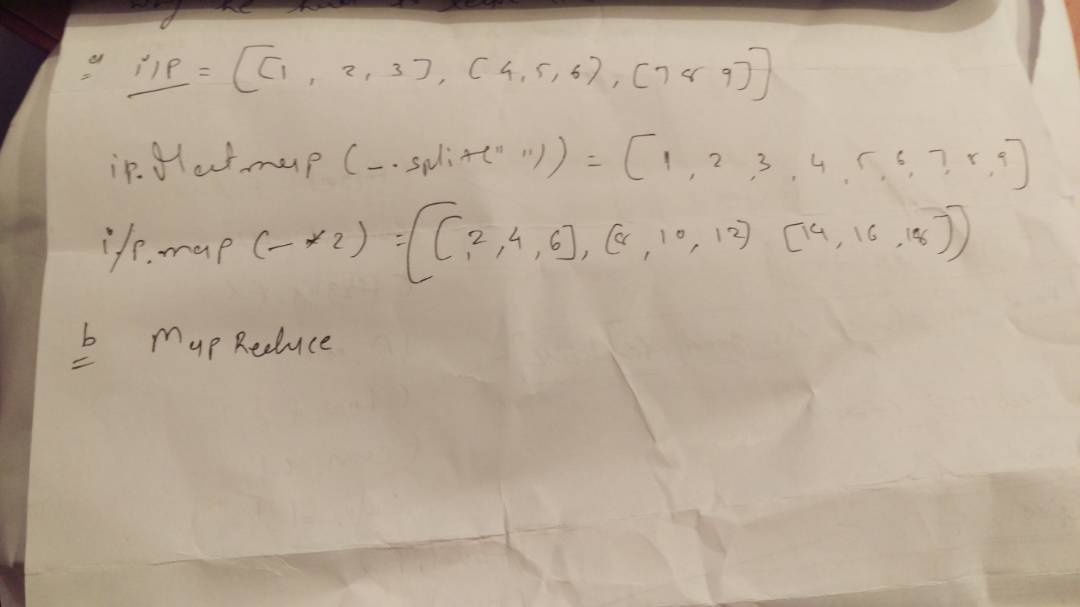 why he had to
a i/p = [[1, 2, 3], [4, 5, 6], [7 8 9]]
ip.flatmap (_.split(" ")) = [1, 2, 3, 4, 5, 6, 7, 8, 9]
i/p.map (_ * 2) = [[2, 4, 6], [8, 10, 12] [14, 16, 18]]
b MapReduce